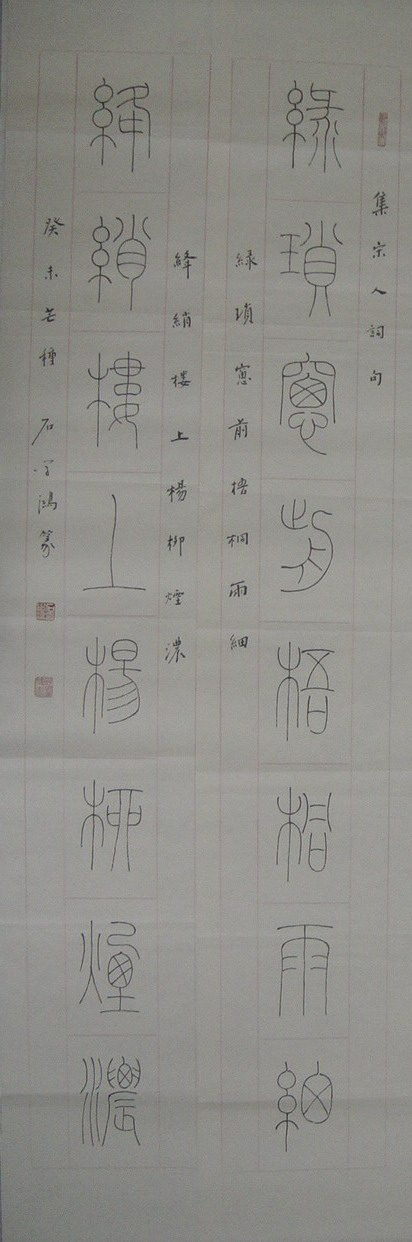 集宋人詞句
緑瑣窗前梧桐雨細
緑瑣窓前梧桐雨細
絳綃樓上楊柳煙濃
絳綃樓上楊柳煙濃
癸未芒種 石学鴻篆